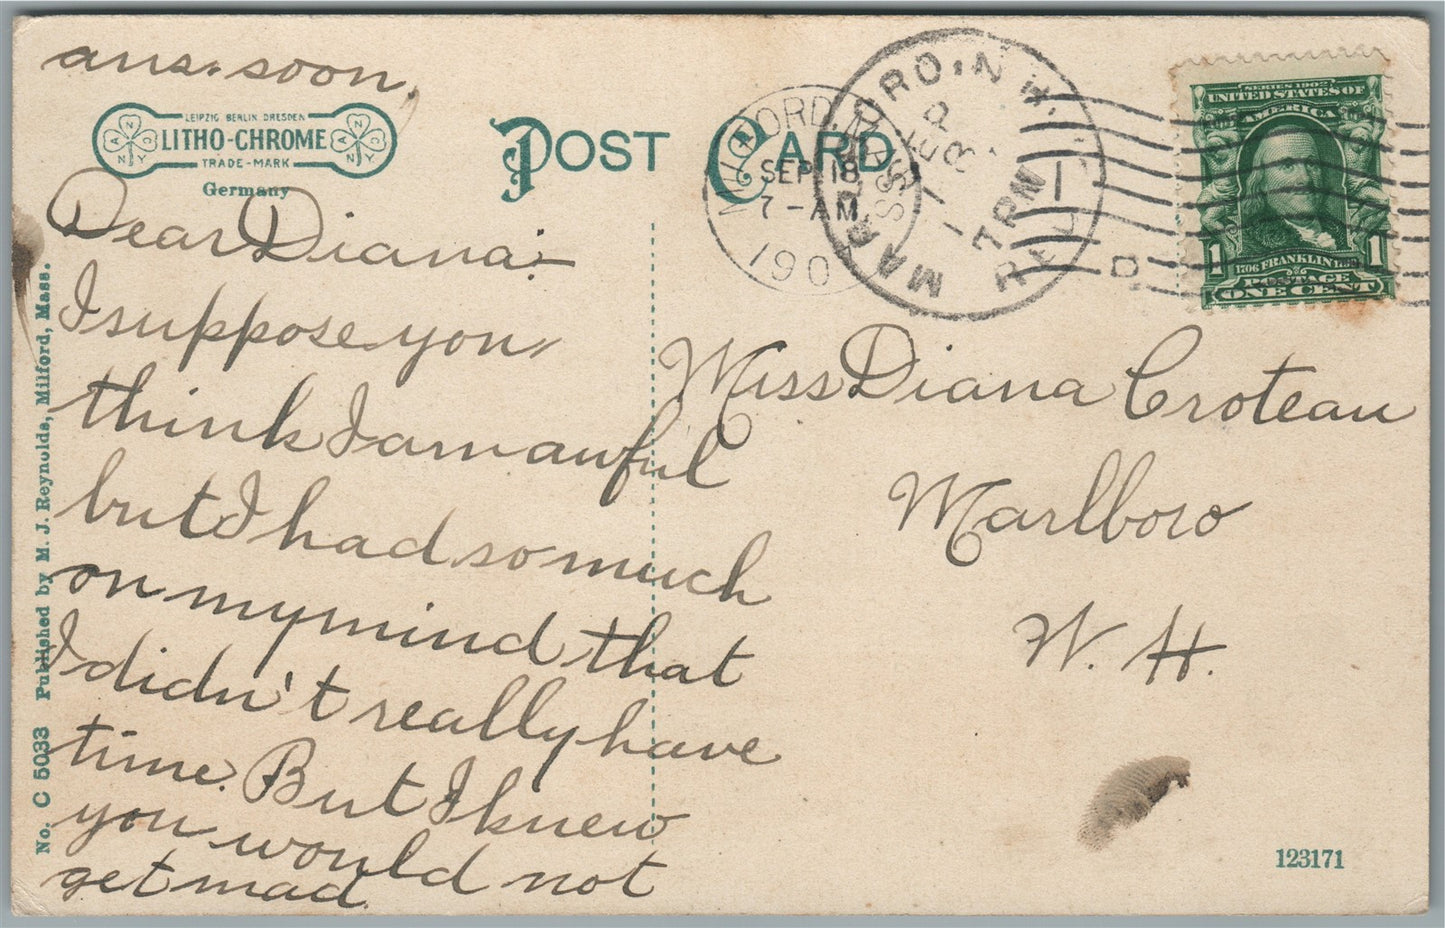 ans. soon.
LEIPZIG BERLIN DRESDEN
LITHO-CHROME
TRADE-MARK
Germany
POST CARD
MILFORD, MASS
SEP 18
7-AM
190
MARLBORO, N.H.
SEP
18
7 PM
REC'D.
SERIES 1902
UNITED STATES OF
AMERICA
1706 FRANKLIN
POSTAGE
1 1
ONE CENT
Dear Diana:—
I suppose you
think I am awful
but I had so much
on my mind that
I didn't really have
time. But I knew
you would not
get mad.
Miss Diana Croteau
Marlboro
N. H.
No. C 5033 Published by M. J. Reynolds, Milford, Mass.
123171